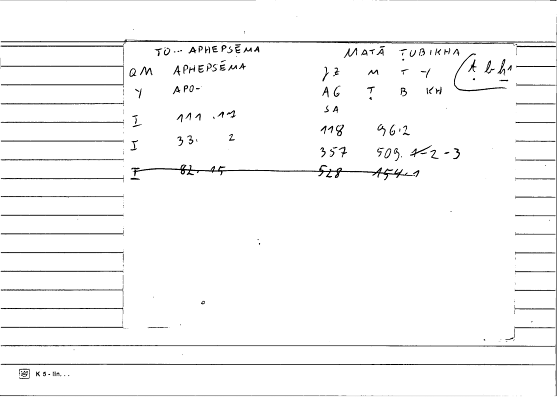 TO... APHEPSĒMA MATĀ ṬUBIKHA
QM APHEPSĒMA JZ M T Y
Y APO- AG Ṭ B KH
SA
I 111.11 118 96.2
I 33. 2 357 509. 1-2-3
I 82.15 528 154.1
K 5 - lin...